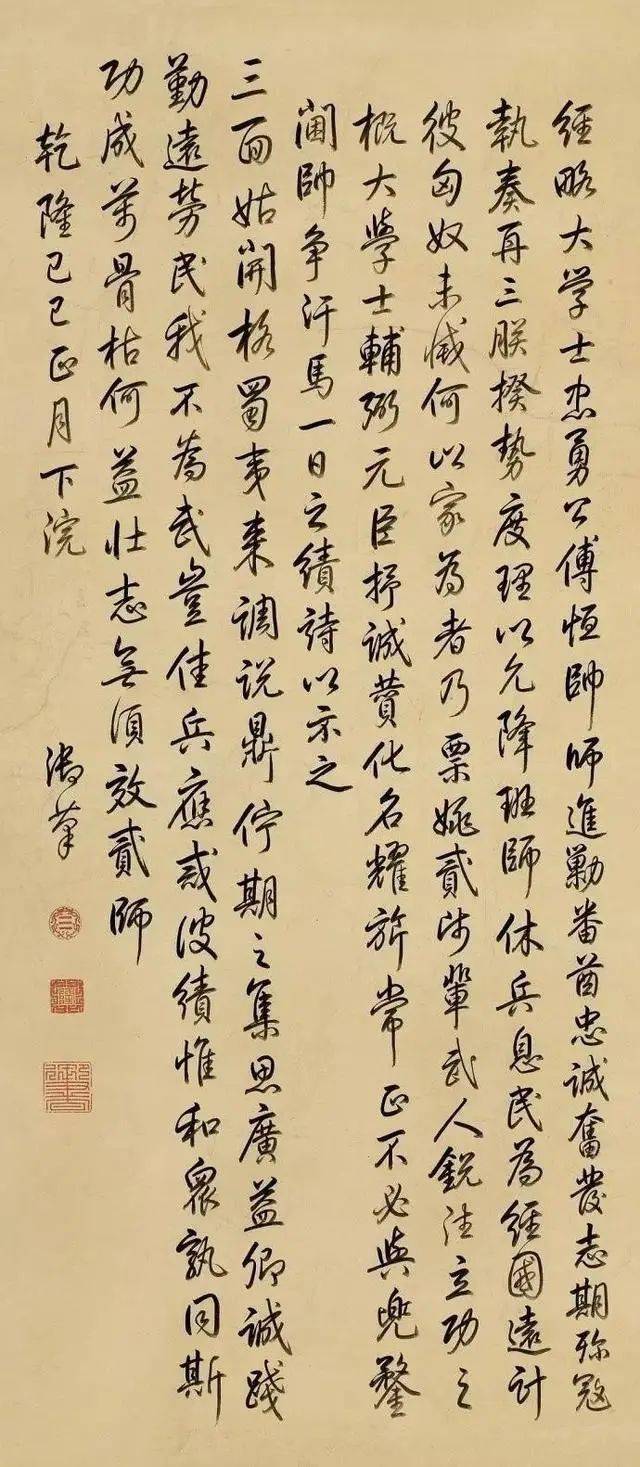 經略大学士忠勇公傅恒帥師進勦番酋忠誠奮發志期殄寇
執奏再三朕揆勢度理以允降班師休兵息民為經國遠計
彼匈奴未滅何以家為者乃票姚貳師輩武人銳往立功之
概大學士輔弼元臣抒誠贊化名耀旂常正不必與兜鍪
閫帥争汗馬一日之績詩以示之
三面姑開格蜀夷来調説鼎佇期之集思廣益卿誠踐
勤遠勞民我不為武豈佳兵應戒彼績惟和衆孰同斯
功成萬骨枯何益壯志無須效貳師
乾隆己巳正月下浣
御筆